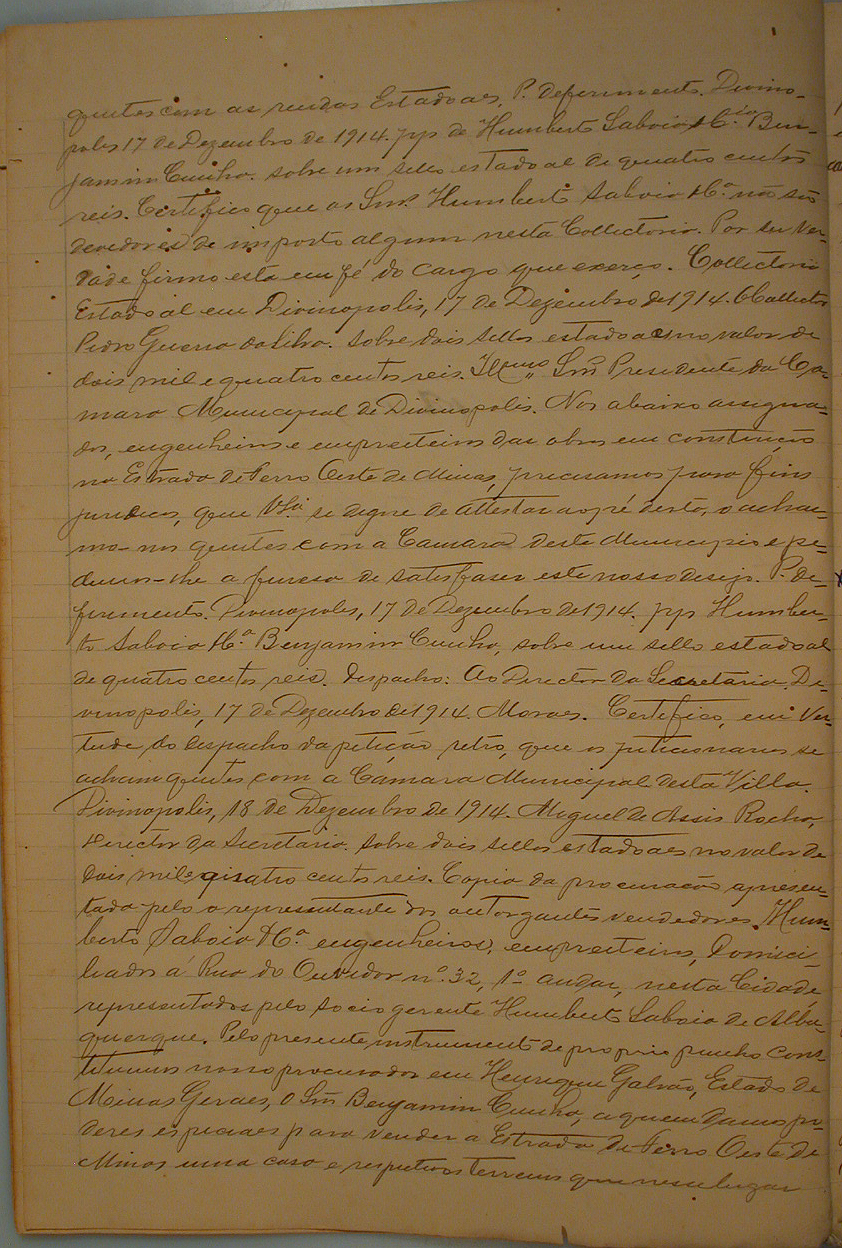 quites com as rendas Estadoaes. P. deferimento. Divino-
polis 17 de Dezembro de 1914. pp de Humberto Saboia & Cia Ben-
jamim Cunha. sobre um sello estadoal de quatro centos
reis. Certifico que os Snrs. Humberto Saboia & Ca. não são
devedores de imposto algum nesta Collectoria. Por ser ver-
dade firmo esta em fé do cargo que exerço. Collectoria
Estadoal em Divinopolis, 17 de Dezembro de 1914. O Collector
Pedro Guerra da Silva. sobre dois sellos estadoaes no valor de
dois mil e quatro centos reis. Illmo. Snr. Presidente da Ca-
mara Municipal de Divinopolis. Nos abaixo assigna-
dos, engenheiros e empreiteiros das obras em construção
na Estrada de Ferro Oeste de Minas, precisamos para fins
juridicos, que V.Sa. se digne de attestar ao pé desta, se acha-
mo-nos quites com a Camara deste Municipio e pe-
dimos-lhe a fineza de satisfazer este nosso desejo. P. de-
ferimento. Divinopolis, 17 de Dezembro de 1914. pp Humber-
to Saboia & Ca. Benjamim Cunha, sobre um sello estadoal
de quatro centos reis. Despacho: Ao Director da Secretaria. Di-
vinopolis, 17 de Dezembro de 1914. Moraes. Certefico, em vir-
tude do despacho da petição retro, que os peticionarios se
acham quites com a Camara Municipal desta Villa.
Divinopolis, 18 de Dezembro de 1914. Miguel de Assis Rocha,
Director da Secretaria. sobre dois sellos estadoaes no valor de
dois mil e quatro centos reis. Copia da procuração apresen-
tada pelo o representante dos outorgantes vendedores. Hum-
berto Saboia & Ca. engenheiros, empreiteiros, domici-
liados á Rua do Ouvidor no. 32, 1o. andar, nesta Cidade,
representados pelo socio gerente Humberto Saboia de Albu-
querque. Pelo presente instrumento de proprio punho cons-
tituimos nosso procurador em Henrique Galvão, Estado de
Minas Geraes, o Snr. Benjamim Cunha, a quem damos po-
deres especiaes para vender a Estrada de Ferro Oeste de
Minas uma casa e respectivos terrenos que nesse lugar